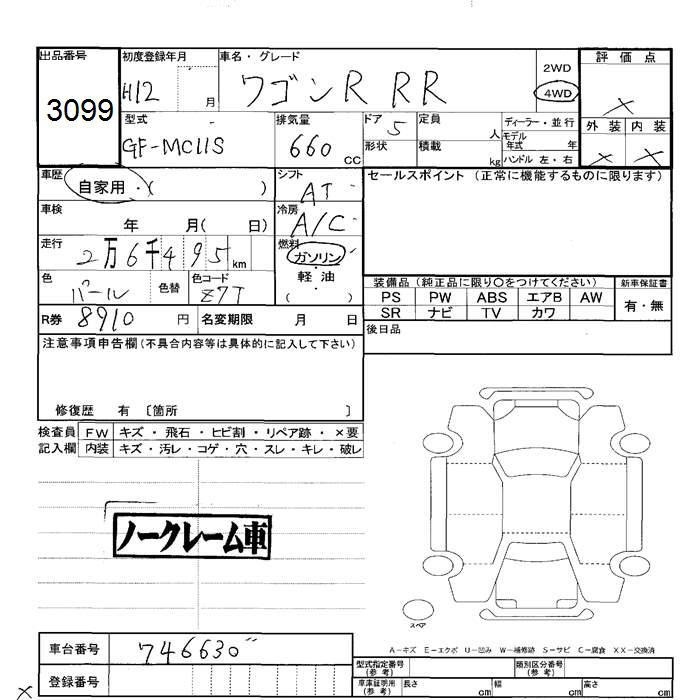 出品番号 初度登録年月 車名・グレード 評価点
3099 H12 月 ワゴンR RR 2WD 4WD ×
型式 排気量 ドア 定員 ディーラー・並行 外装 内装
GF-MC11S 660 CC 5 人 モデル年式 年 × ×
形状 積載 kg ハンドル 左・右
車歴 自家用・( ) シフト AT セールスポイント (正常に機能するものに限ります)
車検 年 月( 日) 冷房 A/C
走行 2万6千495 km 燃料 ガソリン
軽・油
( )
色 パール 色替 色コード Z7T
装備品 (純正品に限り○をつけてください) 新車保証書
PS PW ABS エアB AW 有・無
SR ナビ TV カワ
R券 8910 円 名変期限 月 日
後日品
注意事項申告欄(不具合内容等は具体的に記入して下さい)
修復歴 有 〔箇所 〕
検査員 FW キズ・飛石・ヒビ割・リペア跡・×要
記入欄 内装 キズ・汚レ・コゲ・穴・スレ・キレ・破レ
ノークレーム車
スペア
A-キズ E-エクボ U-凹み W-補修跡 S-サビ C-腐食 XX-交換済
車台番号 746630"
型式指定番号(参考) 類別区分番号(参考)
登録番号
車庫証明用(参考) 長さ cm 幅 cm 高さ cm
×